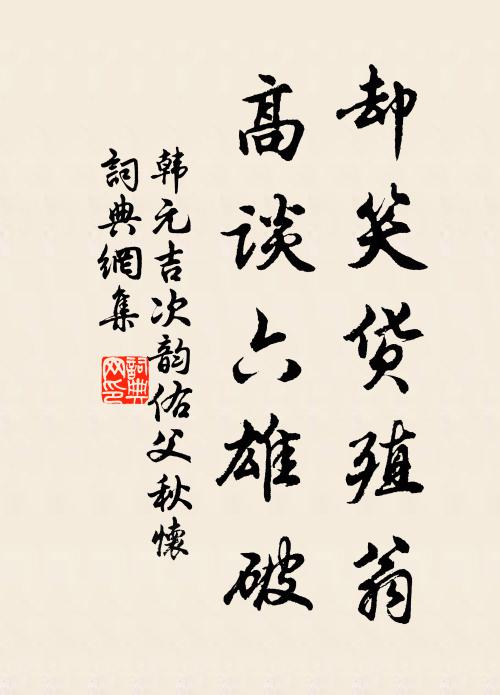 却笑货殖翁
高谈六雄破
韩元吉次韵佑父秋懷
詞典網集
詞典
网印